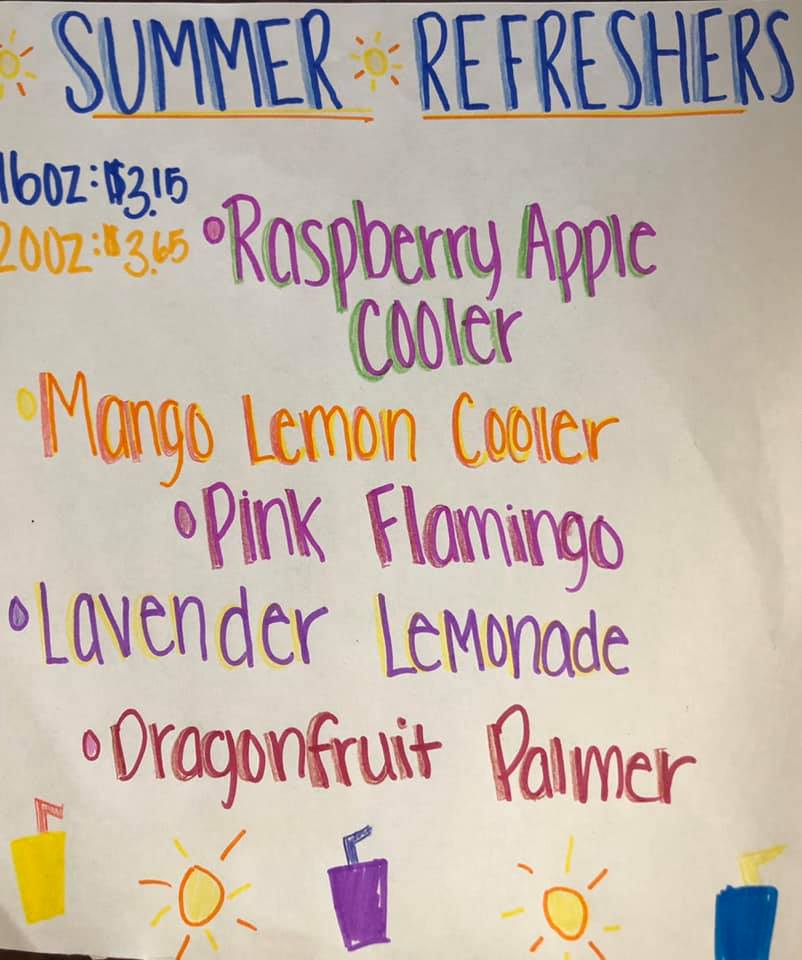 SUMMER REFRESHERS
16oz: $3.15
20oz: $3.65
•Raspberry Apple
Cooler
•Mango Lemon Cooler
•Pink Flamingo
•Lavender Lemonade
•Dragonfruit Palmer